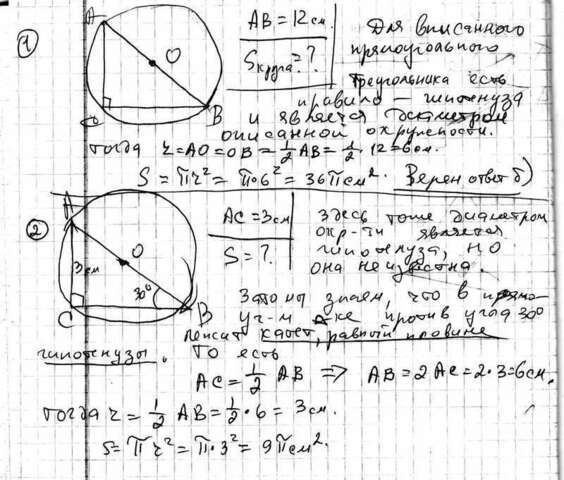 1
A
O
C
B
AB = 12 см.
Sкруга = ?
Для вписанного
прямоугольного
треугольника есть
правило – гипотенуза
и является диаметром
описанной окружности.
тогда r = AO = OB = 1/2 AB = 1/2 · 12 = 6 см.
S = πr² = π·6² = 36π см². Верен ответ б)
2
A
O
3 см
30°
C
B
AC = 3 см
S = ?
Здесь тоже диаметром
окр-ти является
гипотенуза, но
она неизвестна.
Зато мы знаем, что в прямо-
уг-м △ке против угла 30°
лежит катет, равный половине
гипотенузы. То есть
AC = 1/2 AB ⇒ AB = 2AC = 2·3 = 6 см.
тогда r = 1/2 AB = 1/2 · 6 = 3 см.
S = πr² = π·3² = 9π см².